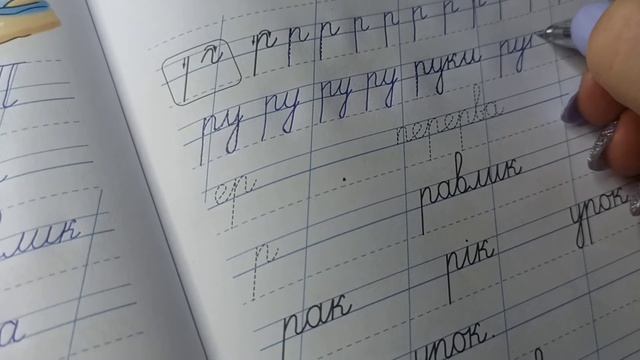 р р р р р р р р р
ру ру ру ру руки ру
ер перерва
р равлик
рак рік урок
урок.